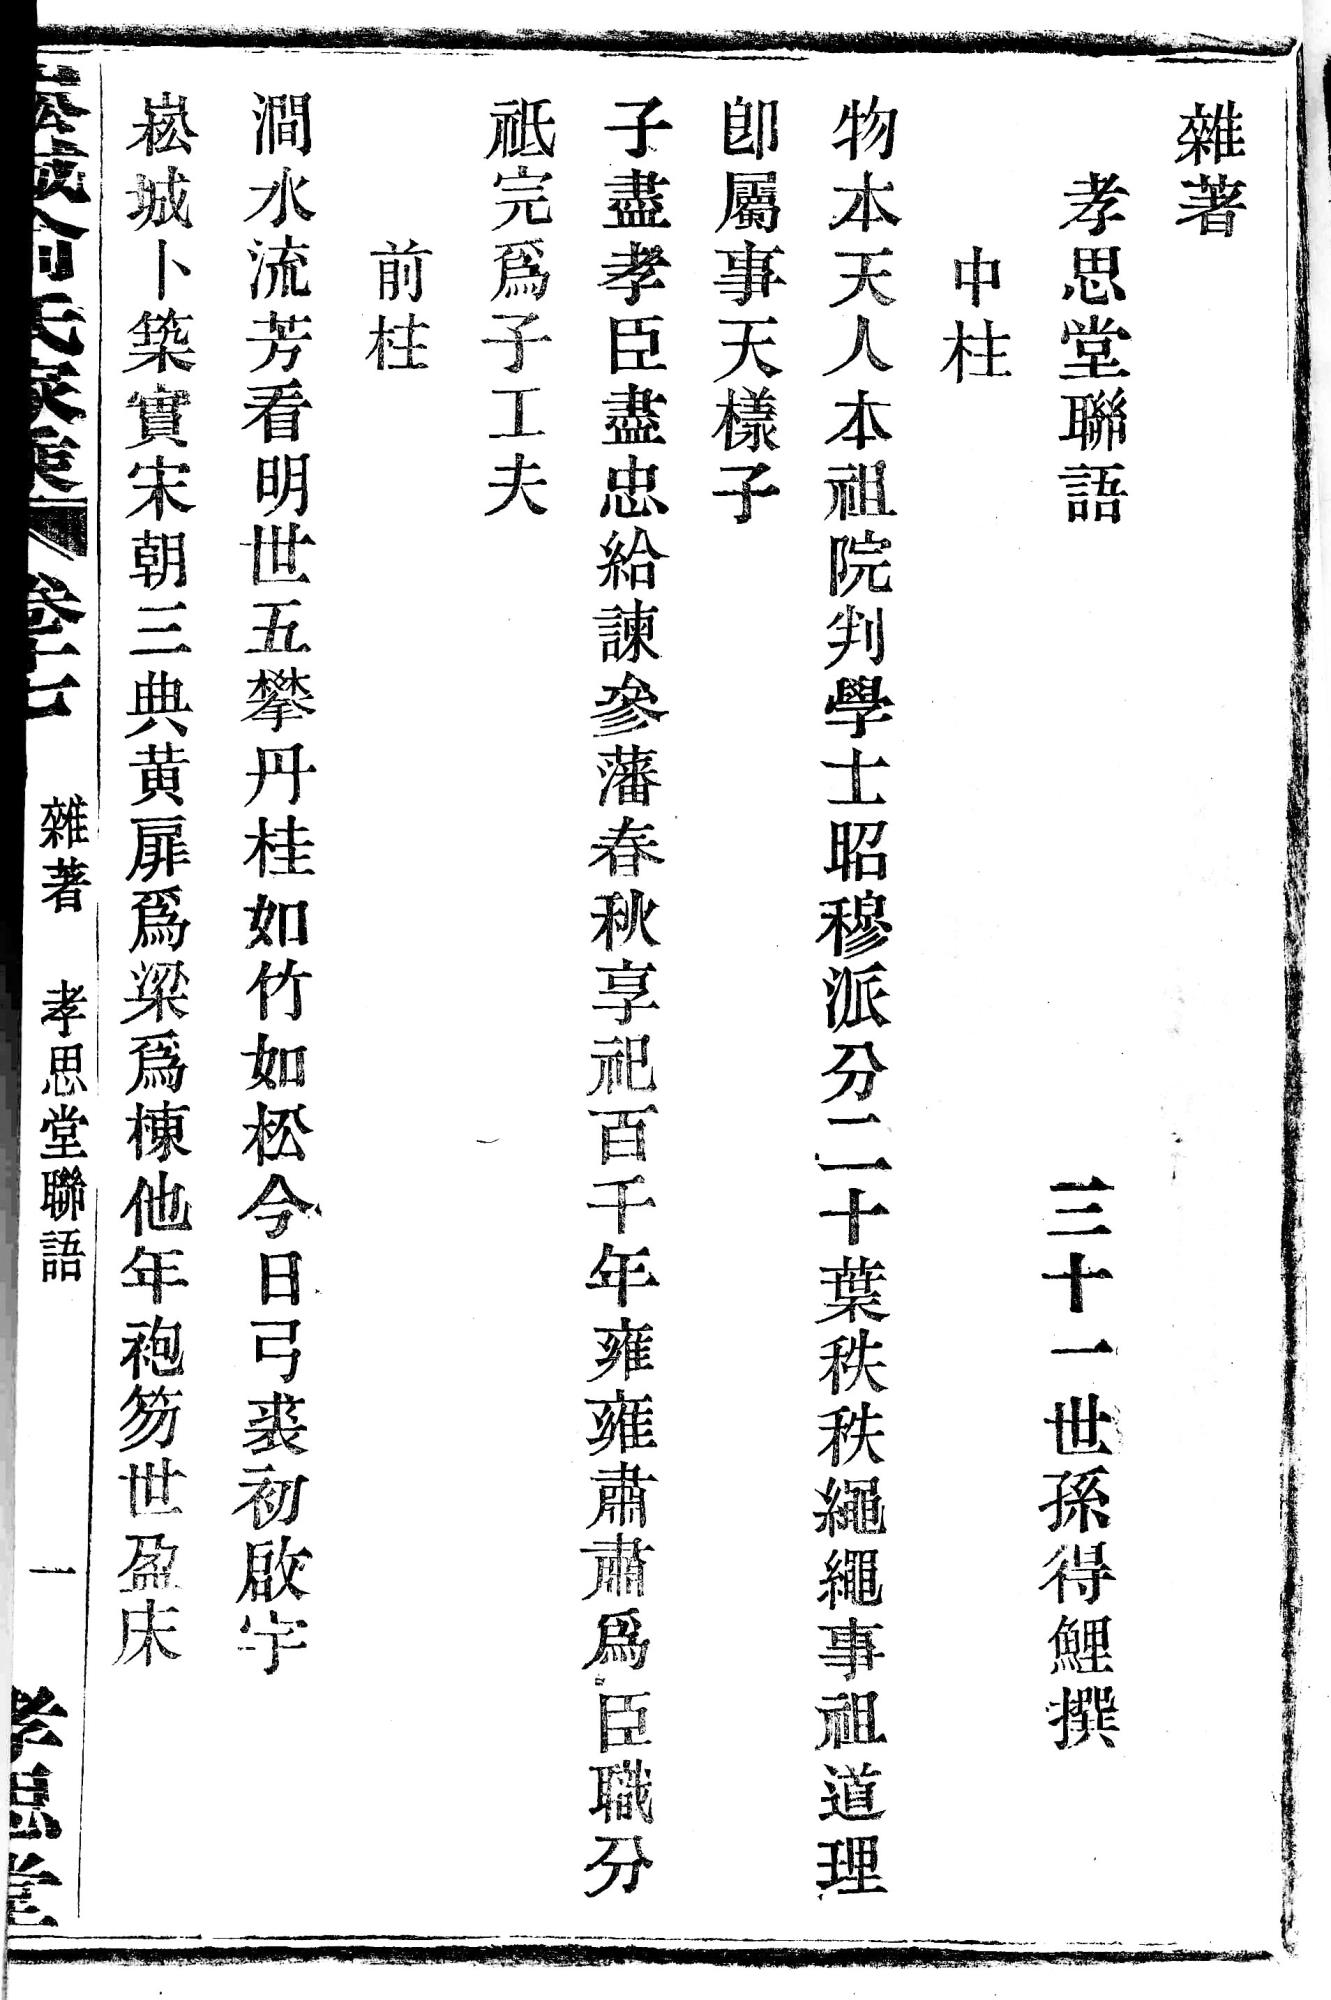 雜著
孝思堂聯語
三十一世孫得鯉撰
中柱
物本天人本祖院判學士昭穆派分二十葉秩秩繩繩事祖道理
卽屬事天樣子
子盡孝臣盡忠給諫參藩春秋享祀百千年雍雍肅肅爲臣職分
祗完爲子工夫
前柱
澗水流芳看明世五攀丹桂如竹如松今日弓裘初啟宇
崧城卜築實宋朝三典黄扉爲梁爲棟他年袍笏世盈床
氏家乘
卷十七
雜著
孝思堂聯語
一
孝思堂